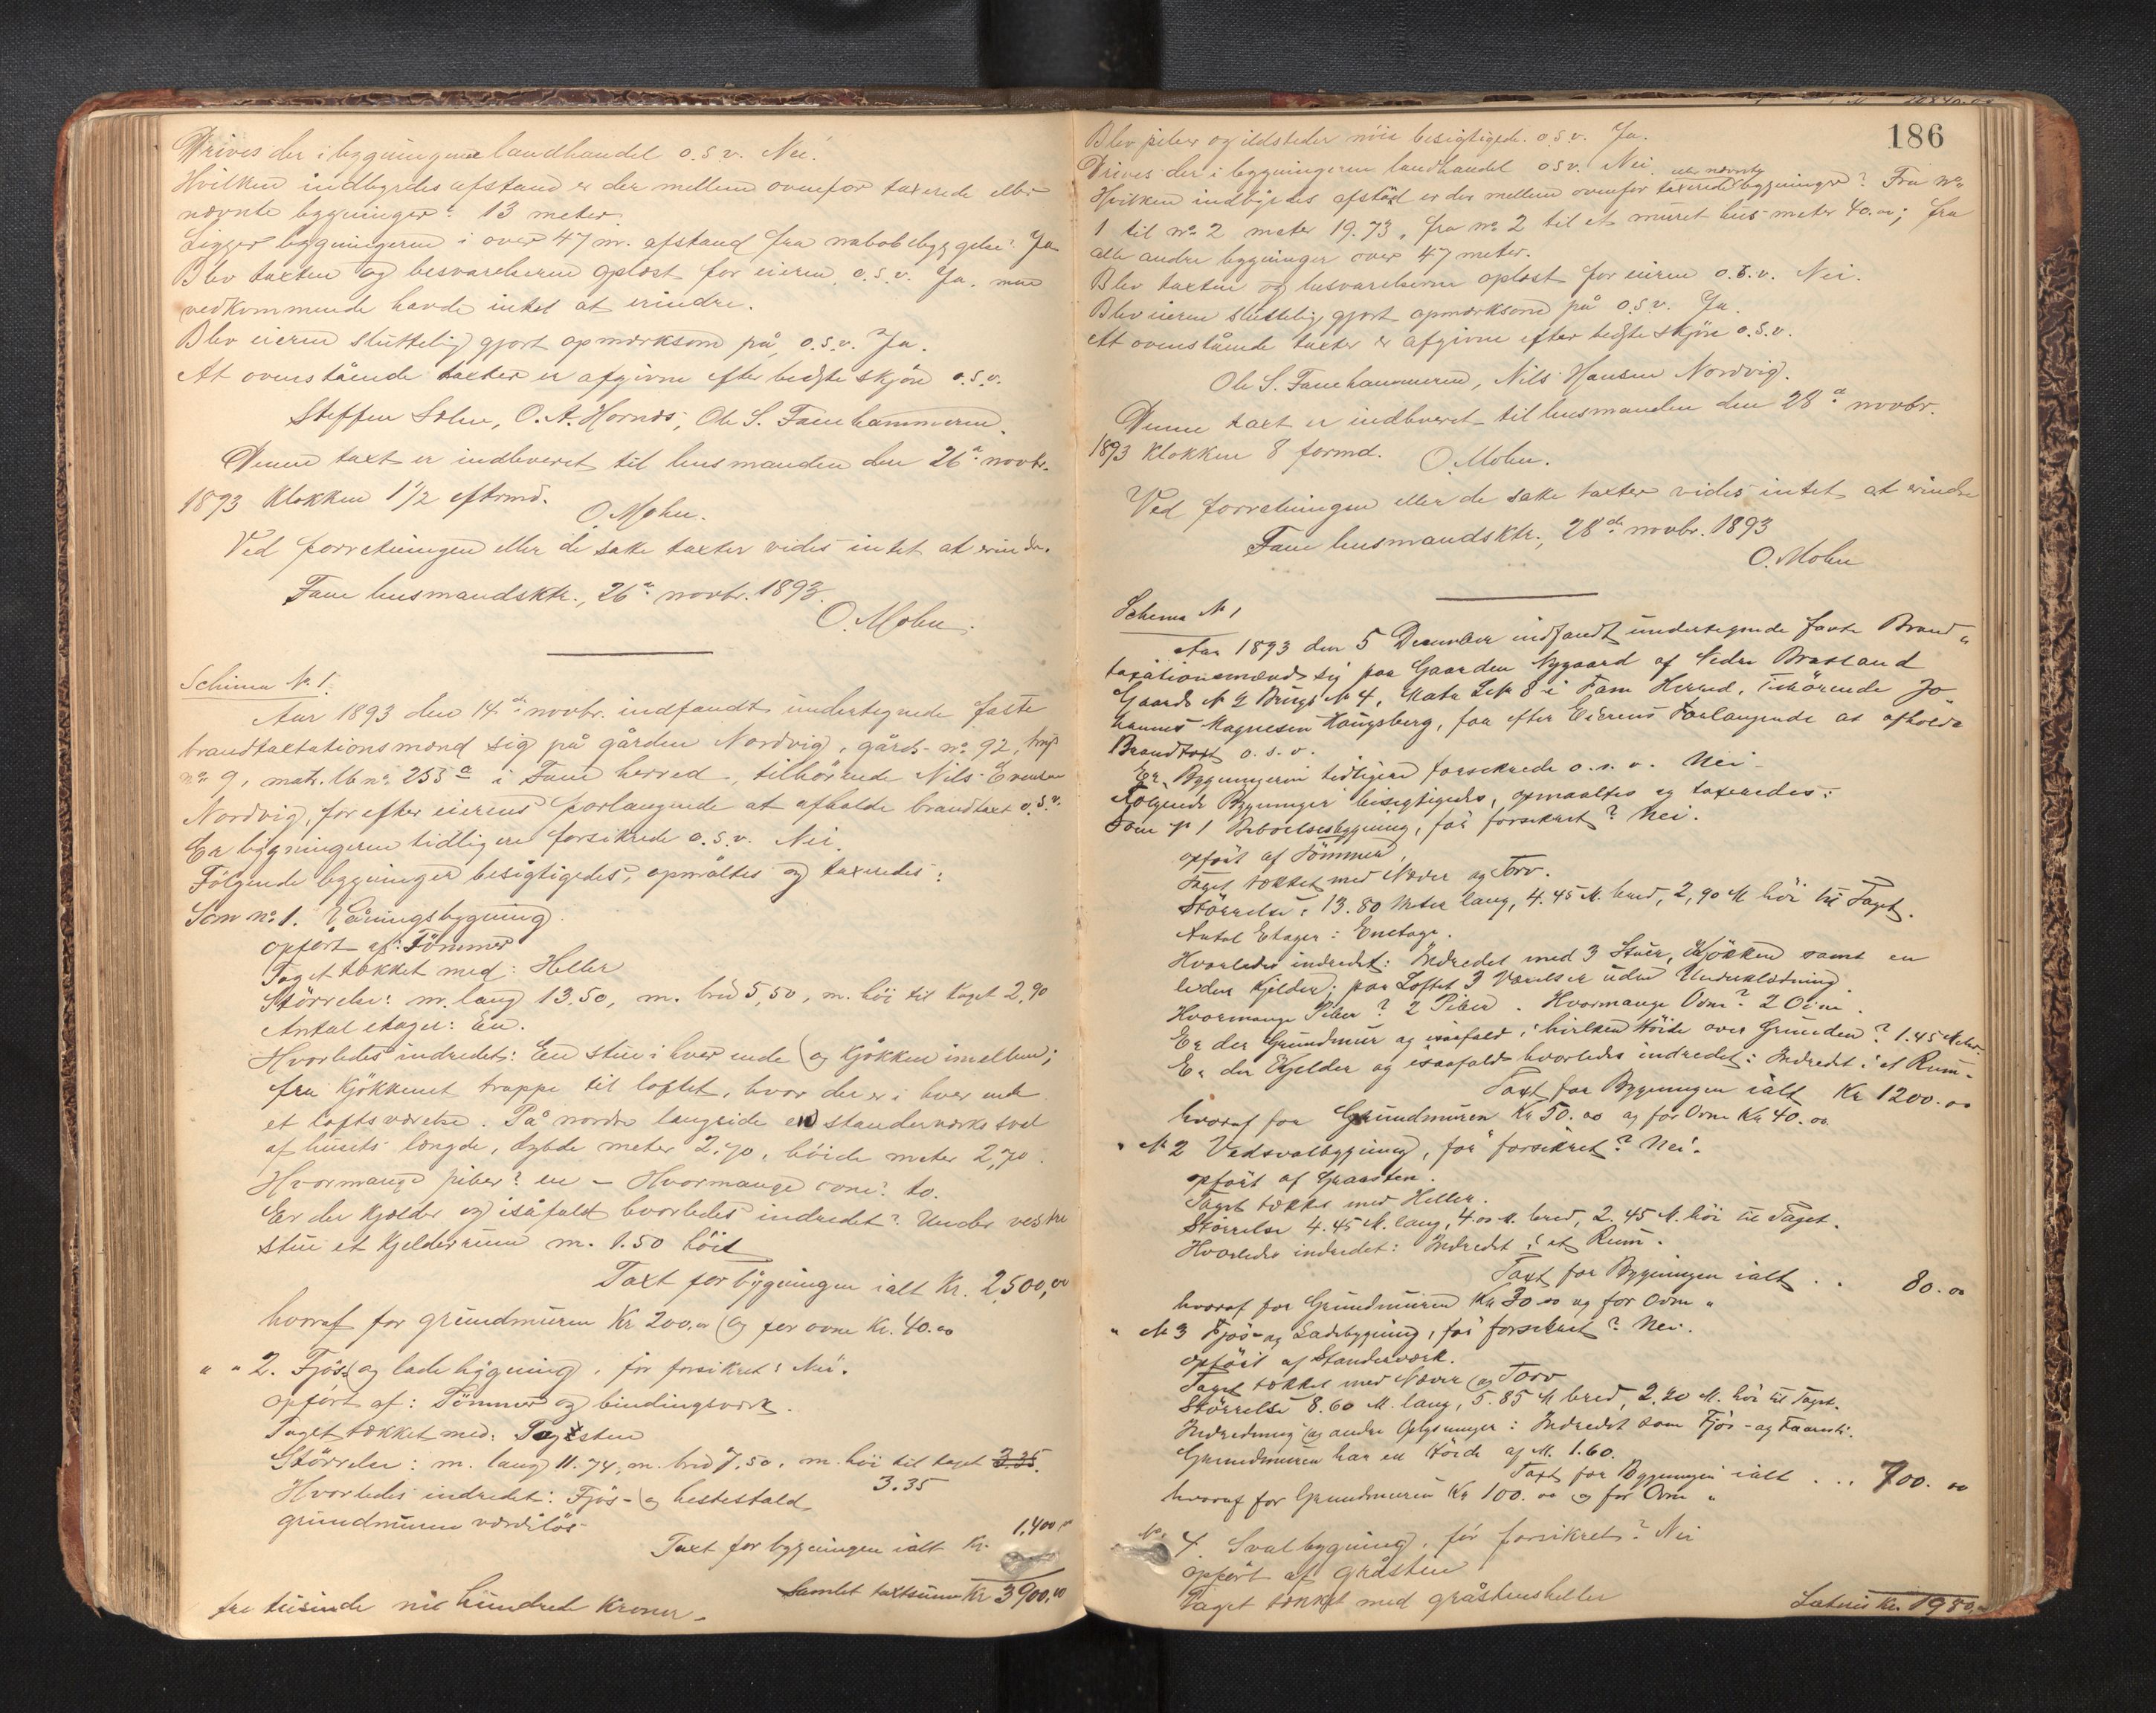 Drives der i bygningerne landhandel o.s.v. Nei.
Hvilken indbyrdes afstand er der mellem ovenfor taxerede eller
nævnte bygninger? 13 meter.
Ligger bygningerne i over 47 m. afstand fra nabobebyggelse? Ja
Blev taxten og besvarelserne oplæst for eieren o.s.v. Ja, men
vedkommende havde intet at erindre.
Blev eieren sluttelig gjort opmærksom på, o.s.v. Ja.
At ovenstående taxter er afgivne efter bedste skjøn o.s.v.
Steffen Sælen, O. A. Hornæs, Ole S. Fanehammeren.
Denne taxt er indleveret til lensmanden den 26de novbr.
1893 Klokken 1 1/2 eftrmd. O. Mohn.
Ved forretningen eller de satte taxter vides intet at erindre.
Fane lensmandsktr., 26de novbr. 1893.
O. Mohn.
Schema No 1.
Aar 1893 den 14de novbr. indfandt undertegnede faste
brandtaxtationsmænd sig på gården Nordvig, gårds-no 92, brugs
no 9, matr. lbno 253 a i Fane herred, tilhørende Nils Evensen
Nordvig, for efter eierens forlangende at afholde brandtaxt o.s.v.
Er bygningerne tidligere forsikrede o.s.v. Nei.
Følgende bygninger besigtigedes, opmåltes og taxeredes:
Som no 1. Våningsbygning.
opført af: Tømmer
Taget tækket med: Heller
Størrelse: m. lang 13,50, m. bred 5,50, m. høi til taget 2,90
Antal etager: En.
Hvorledes indredet: En stue i hver ende og Kjøkken imellem;
fra Kjøkkenet trappe til loftet, hvor der er i hver ende
et loftsværelse. På nordre langside en standerværks sval
af husets længde, dybde meter 2,70, høide meter 2,70.
Hvormange piber? en – Hvormange ovne? to.
Er der Kjelder og isåfald hvorledes indredet? Under vestre
stue et Kjelderrum m. 1.50 høit
Taxt for bygningen ialt Kr. 2500,00
hvoraf for grundmuren Kr 200,00 og for ovne Kr. 40.00
" " 2. Fjøs- og ladebygning, før forsikret? Nei.
opført af: Tømmer og bindingsværk.
Taget tækket med: Tagsten
Størrelse: m. lang 11.74, m. bred 7,50, m. høi til taget 3.35.
Hvorledes indredet: Fjøs- og hestestald 3.35
grundmuren værdiløs
Taxt for bygningen ialt Kr. 1,400,00
Samlet taxtsum Kr 3900,00
tre tusinde ni hundrede Kroner –
186
Blev piber og ildsteder nøie besigtigede o.s.v. Ja.
Drives der i bygningerne landhandel o.s.v. Nei.
eller nævnte
Hvilken indbyrdes afstand er der mellem ovenfor taxerede bygninger? Fra no
1 til no 2 meter 19.73, fra no 2 til et muret hus meter 40.00; fra
alle andre bygninger over 47 meter.
Blev taxten og besvarelserne oplæst for eieren o.s.v. Nei.
Blev eieren sluttelig gjort opmærksom på o.s.v. Ja.
At ovenstående taxter er afgivne efter bedste skjøn o.s.v.
Ole S. Fanehammeren, Nils Hansen Nordvig.
Denne taxt er indleveret til lensmanden den 28de novbr.
1893 Klokken 8 formd. O. Mohn.
Ved forretningen eller de satte taxter vides intet at erindre
Fane lensmandsktr., 28de novbr. 1893
O. Mohn
Schema No 1
Aar 1893 den 5 December indfandt undertegnede faste Brand-
taxationsmænd sig paa Gaarden Nygaard af Nedre
Gaards No 2 Brugs No 4, Matr LNo 8 i Fane Herred, tilhørende Jo-
hannes Magnesen Haugsberg, for efter Eierens Forlangende at afholde
Brandtaxt o.s.v.
Er Bygningerne tidligere forsikrede o.s.v. Nei.
Følgende Bygninger besigtigedes, opmaaltes og taxeredes:
Som No 1 Beboelsesbygning, før forsikret? Nei.
opført af Tømmer,
Taget tækket med Næver og Torv.
Størrelse: 13.80 Meter lang, 4.45 M. bred, 2,90 M høi til Taget.
Antal Etager: Enetage.
Hvorledes indredet: Indredet med 3 Stuer, Kjøkken samt en
liden Kjelder; paa Loftet 3 Værelser uden Underklædning.
Hvormange Piber? 2 Piber. Hvormange Ovne? 2 Ovne.
Er der Grundmur og isaafald i hvilken Høide over Grunden? 1.45 Meter.
Er der Kjelder og isaafald hvorledes indredet: Indredet i et Rum.
Taxt for Bygningen ialt Kr 1200.00
hvoraf for Grundmuren Kr 50.00 og for Ovne Kr 40.00
" No 2 Vedsvalbygning, før forsikret? Nei.
opført af Graasten.
Taget tækket med Heller.
Størrelse 4.45 M. lang, 4.00 M. bred, 2.45 M. høi til Taget.
Hvorledes indredet: Indredet i et Rum.
Taxt for Bygningen ialt . . 80.00
hvoraf for Grundmuren Kr 30.00 og for Ovne "
" No 3 Fjøs- og Ladebygning, før forsikret? Nei.
opført af Standerværk.
Taget tækket med Næver og Torv
Størrelse 8.60 M. lang, 5.85 M bred, 2.20 M. høi til Taget.
Indredning og andre Oplysninger: Indredet som Fjøs- og Faaresti.
Grundmuren har en Høide af M. 1.60.
Taxt for Bygningen ialt . . . 700.00
hvoraf for Grundmuren Kr 100.00 og for Ovne "
No 4. Svalbygning, før forsikret? Nei
opført af gråsten
Taget tækket med gråstensheller
Lateris Kr. 1980,00